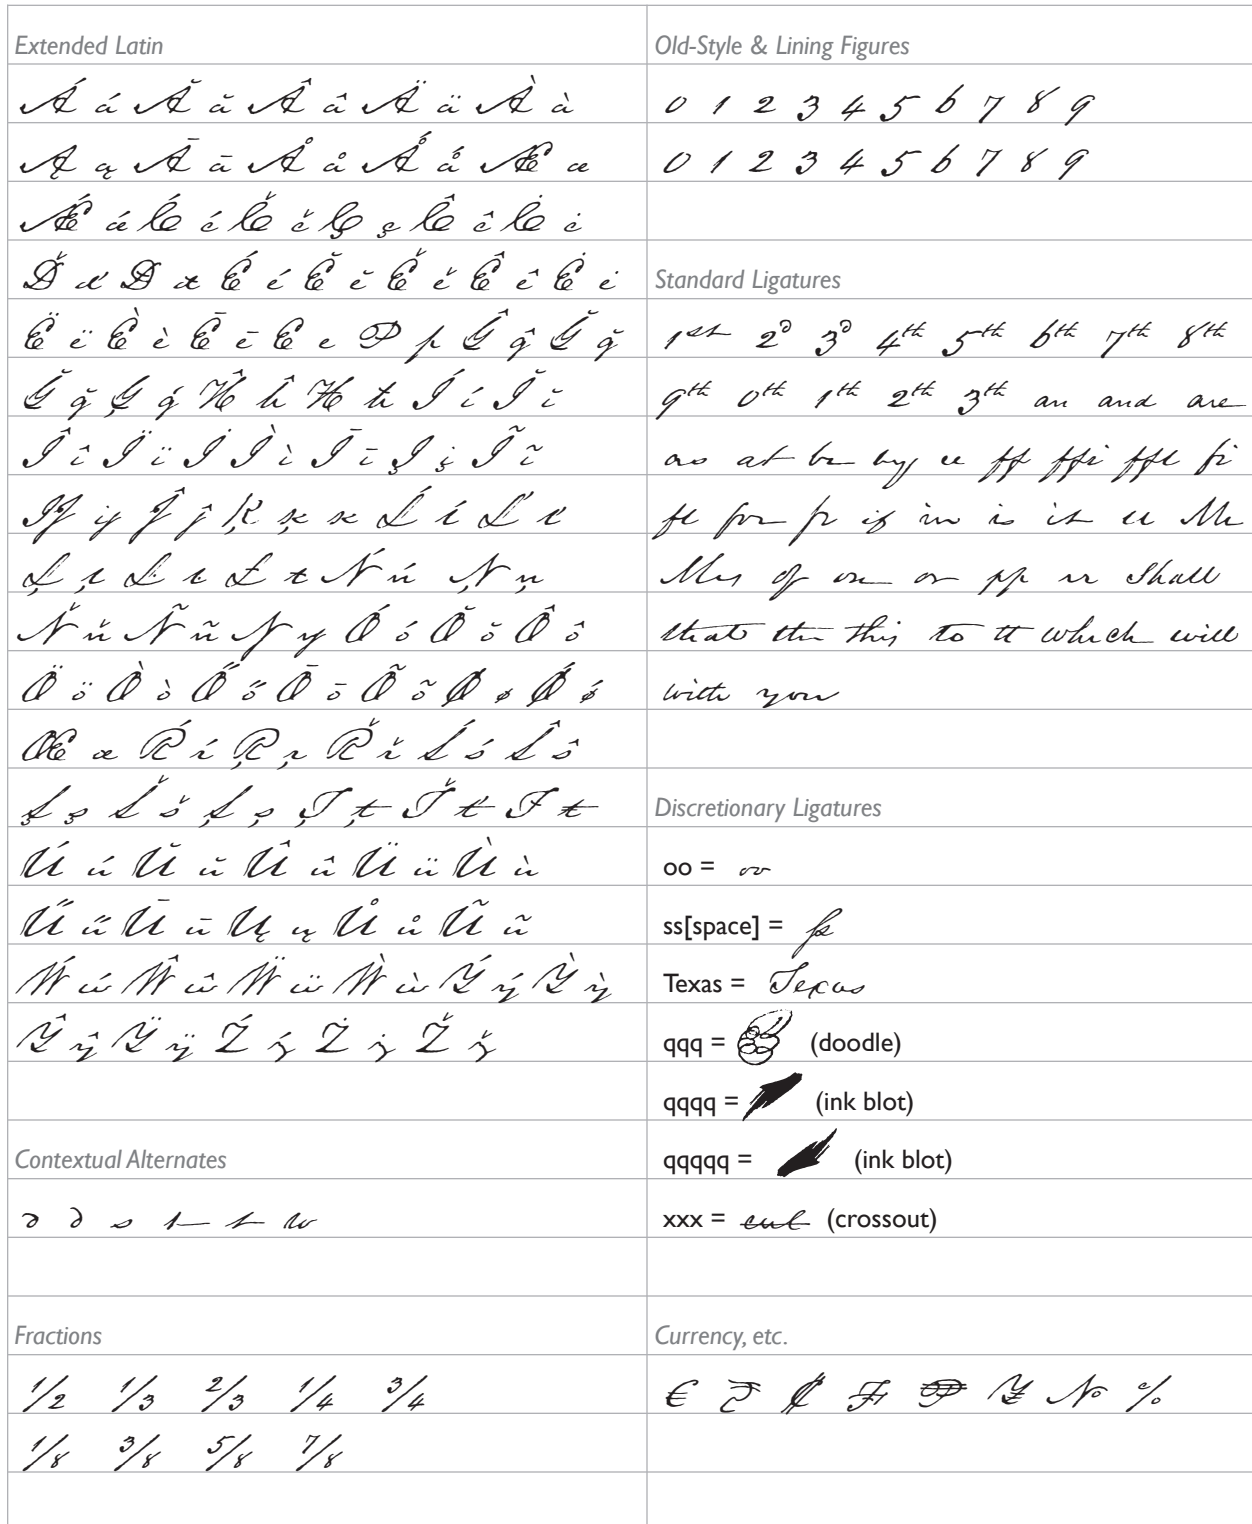 Extended Latin
Á á Ă ă Â â Ä ä À à
Ą ą Ā ā Å å Ǻ ǻ Æ æ
Ǽ ǽ Ć ć Č č Ç ç Ĉ ĉ Ċ ċ
Ď ď Đ đ É é Ĕ ĕ Ě ě Ê ê Ė ė
Ë ë È è Ē ē Ę ę Ĝ ĝ Ğ ğ
Ģ ģ Ĥ ĥ Ħ ħ Í í Ĭ ĭ
Î î Ï ï İ Ì ì Ī ī Į į Ĩ ĩ
IJ ij Ĵ ĵ Ķ ķ ĸ Ĺ ĺ Ľ ľ
Ļ ļ Ŀ ŀ Ł ł Ń ń Ņ ņ
Ň ň Ñ ñ Ŋ ŋ Ó ó Ŏ ŏ Ô ô
Ö ö Ò ò Ő ő Ō ō Õ õ Ø ø Ǿ ǿ
Œ œ Ŕ ŕ Ŗ ŗ Ř ř Ś ś Ŝ ŝ
Ş ş Š š Ș ș Ţ ţ Ť ť Ŧ ŧ
Ú ú Ŭ ŭ Û û Ü ü Ù ù
Ű ű Ū ū Ų ų Ů ů Ũ ũ
Ẃ ẃ Ŵ ŵ Ẅ ẅ Ẁ ẁ Ý ý Ỳ ỳ
Ŷ ŷ Ÿ ÿ Ź ź Ż ż Ž ž
Contextual Alternates
Fractions
1/2 1/3 2/3 1/4 3/4
1/8 3/8 5/8 7/8
Old-Style & Lining Figures
0 1 2 3 4 5 6 7 8 9
0 1 2 3 4 5 6 7 8 9
Standard Ligatures
1st 2d 3d 4th 5th 6th 7th 8th
9th 0th 1th 2th 3th an and are
as at be by ee ff ffi ffl fi
fl for fr if in is it ll Mr
Mrs of on or pp rr Shall
that the this to tt which will
with you
Discretionary Ligatures
oo = oo
ss[space] = ss
Texas = Texas
qqq = (doodle)
qqqq = (ink blot)
qqqqq = (ink blot)
xxx = (crossout)
Currency, etc.
€ ₵ ₣ ₱ ¥ № %